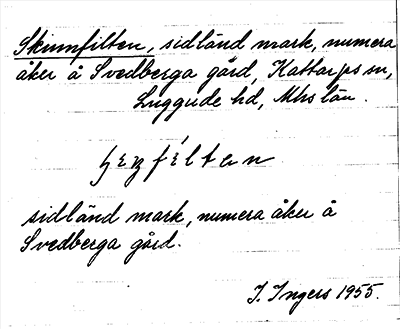 Skumfilten, sidländ mark, numera
åker å Svedberga gård, Kattarps sn,
Luggude hd, Mhs län.
sidländ mark, numera åker å
Svedberga gård.
I. Ingers 1955.